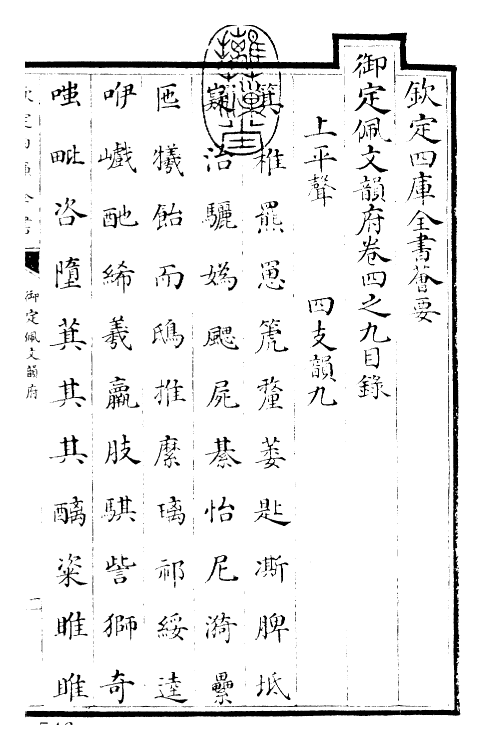 欽定四庫全書薈要
御定佩文韻府卷四之九目錄
上平聲 四支韻九
箕 椎 羆 罳 篪 釐 萎 匙 澌 脾 坻
治 驪 媯 颸 屍 綦 怡 尼 漪 纍
匜 犧 飴 而 鴟 推 縻 璃 祁 綏 逵
咿 巇 酏 絺 羲 羸 肢 騏 訾 獅 奇
嗤 毗 咨 墮 萁 其 其 醨 粢 睢 睢
御定佩文韻府